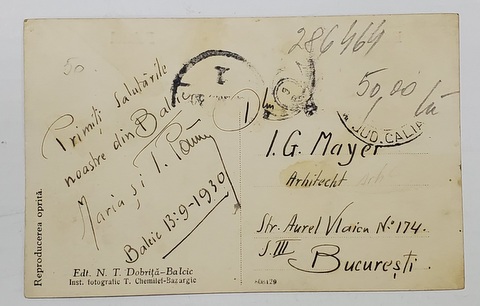 286464
50
50,00
Primiți salutările
noastre din Balcic
Maria și T.
Balcic 13-9-1930
1
JUD. CALIA
I. G. Mayer
Arhitecht
Str. Aurel Vlaicu No 174.
S. III
București.
Reproducerea oprită.
Edt. N. T. Dobrița-Balcic
Inst. fotografic T. Chemilef-Bazargic